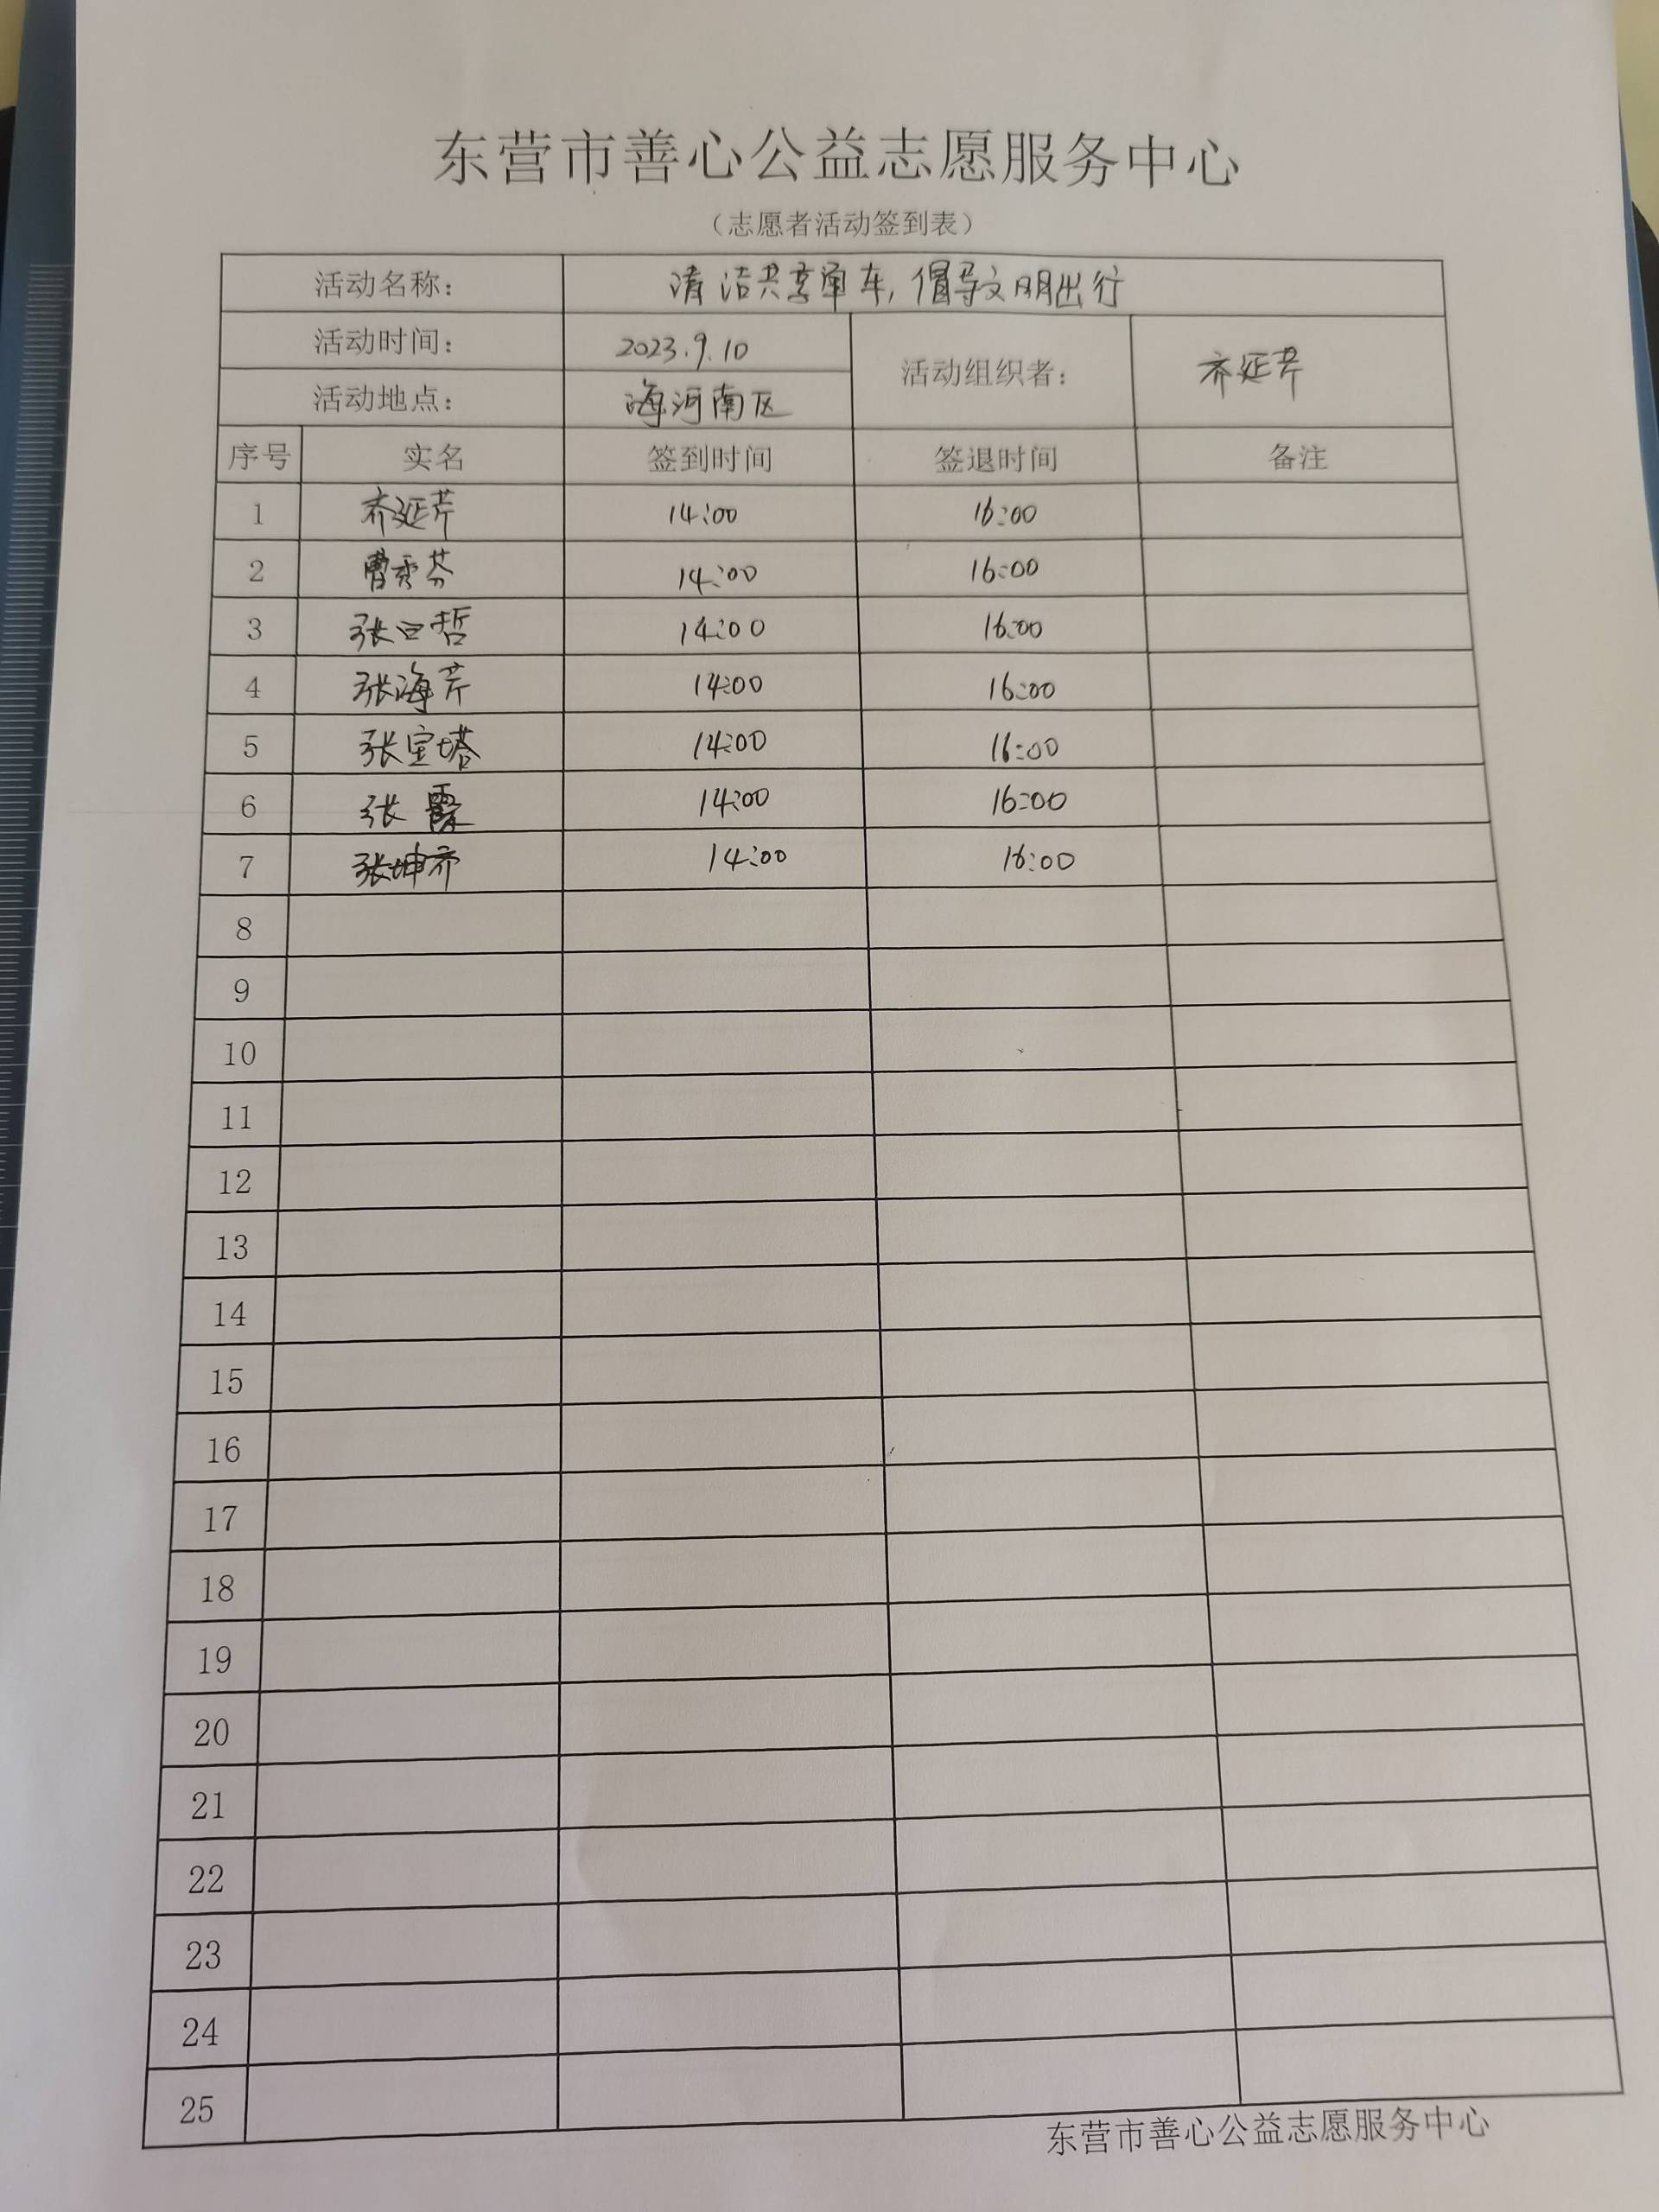 东营市善心公益志愿服务中心
（志愿者活动签到表）
活动名称： 清洁共享单车，倡导文明出行
活动时间： 2023.9.10 活动组织者： 齐延芹
活动地点： 海河南区
序号 实名 签到时间 签退时间 备注
1 齐延芹 14:00 16:00
2 曹秀芬 14:00 16:00
3 张曰哲 14:00 16:00
4 张海芹 14:00 16:00
5 张宝塔 14:00 16:00
6 张霞 14:00 16:00
7 张坤齐 14:00 16:00
8
9
10
11
12
13
14
15
16
17
18
19
20
21
22
23
24
25
东营市善心公益志愿服务中心